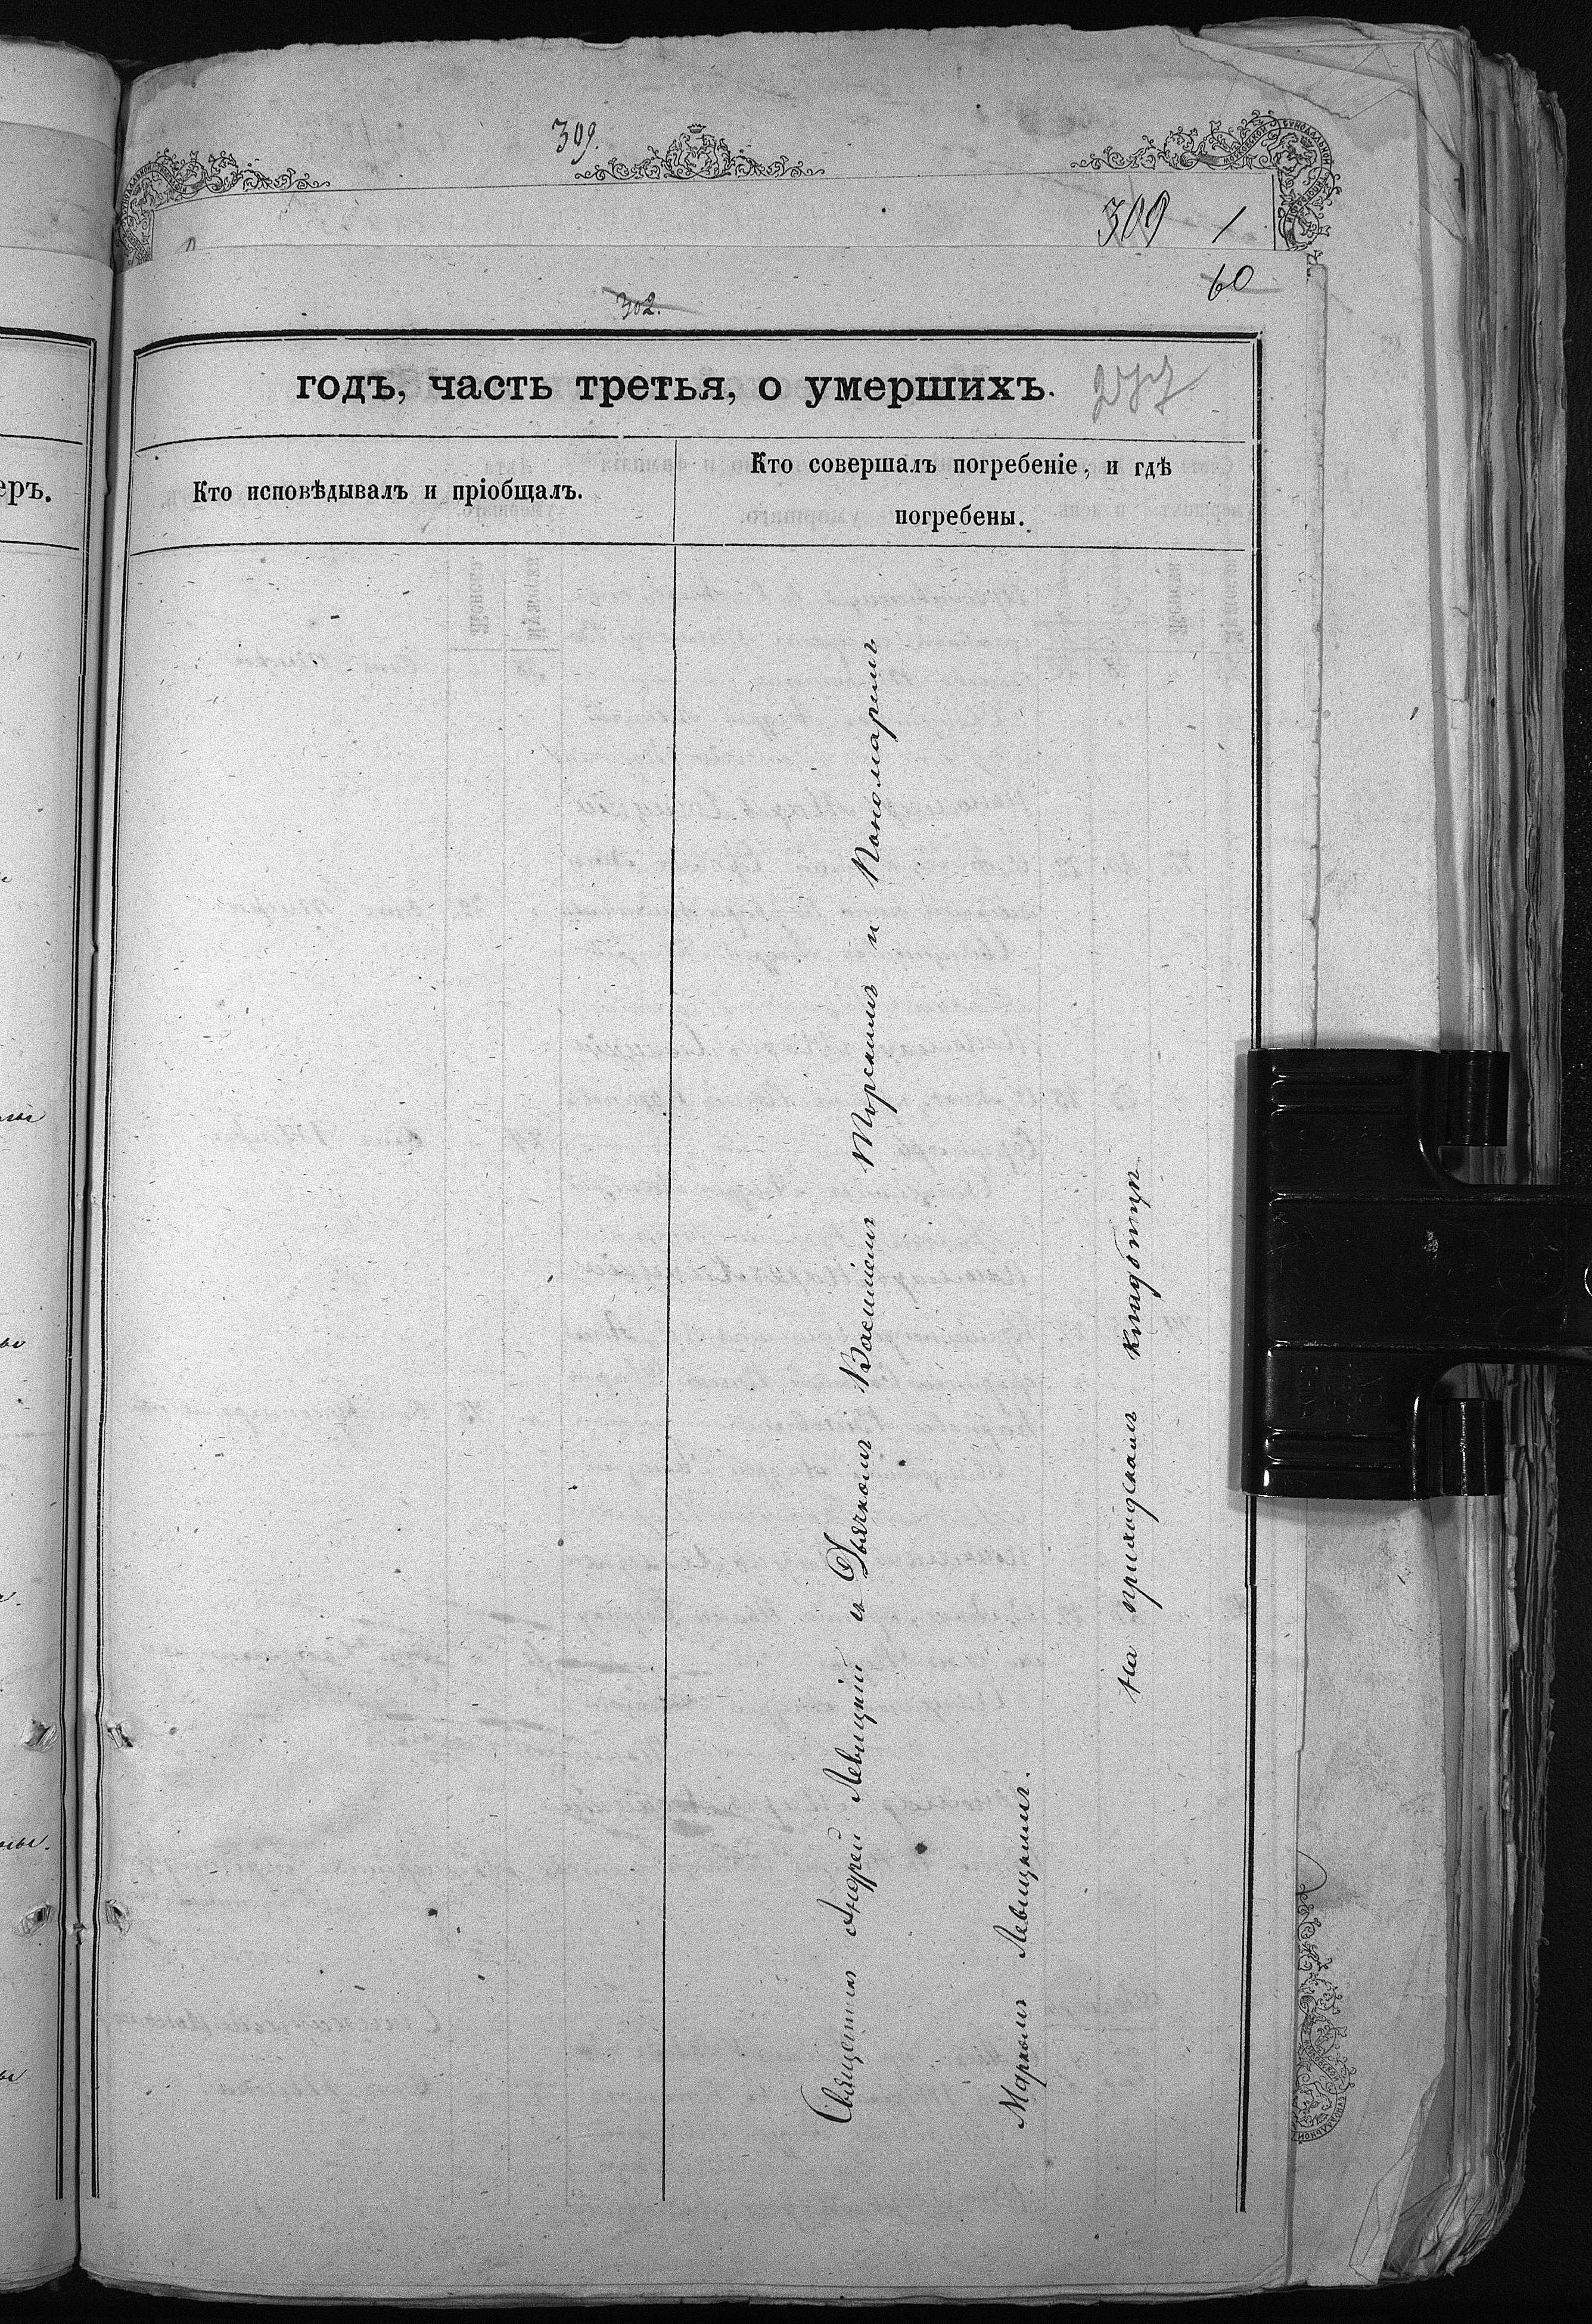 309.
309 1
60
302.
годъ, часть третья, о умершихъ.
277
Кто исповѣдывалъ и пріобщалъ.
Кто совершалъ погребеніе, и гдѣ
погребены.
Священникъ Андрей Левицкій съ Дьячкомъ Василіемъ Торскимъ и Пономаремъ
Маркомъ Левицкимъ.
На приходскомъ кладбищѣ